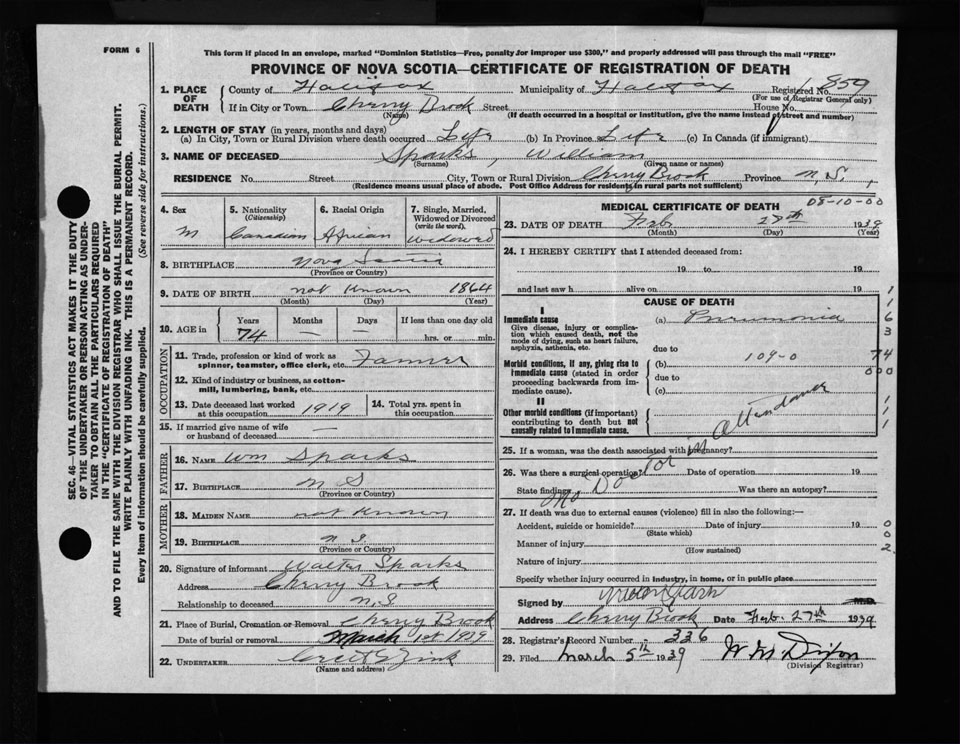 FORM 6
This form if placed in an envelope, marked "Dominion Statistics—Free, penalty for improper use $300," and properly addressed will pass through the mail "FREE"
PROVINCE OF NOVA SCOTIA—CERTIFICATE OF REGISTRATION OF DEATH
1. PLACE OF DEATH
County of Halifax Municipality of Halifax Registered No. 859
(For use of Registrar General only)
If in City or Town Cherry Brook Street House No.
(Name) (If death occurred in a hospital or institution, give the name instead of street and number)
2. LENGTH OF STAY (in years, months and days)
(a) In City, Town or Rural Division where death occurred Life (b) In Province Life (c) In Canada (if immigrant)
3. NAME OF DECEASED Sparks, William
(Surname) (Given name or names)
RESIDENCE No. Street City, Town or Rural Division Cherry Brook Province N.S.
(Residence means usual place of abode. Post Office Address for residents in rural parts not sufficient)
4. Sex M
5. Nationality (Citizenship) Canadian
6. Racial Origin African
7. Single, Married, Widowed or Divorced (write the word). Widowed
8. BIRTHPLACE Nova Scotia
(Province or Country)
9. DATE OF BIRTH not Known 1864
(Month) (Day) (Year)
10. AGE in Years 74 Months — Days — If less than one day old hrs. or min.
OCCUPATION
11. Trade, profession or kind of work as spinner, teamster, office clerk, etc. Farmer
12. Kind of industry or business, as cotton-mill, lumbering, bank, etc.
13. Date deceased last worked at this occupation 1919
14. Total yrs. spent in this occupation
15. If married give name of wife or husband of deceased —
FATHER
16. NAME Wm Sparks
17. BIRTHPLACE N S
(Province or Country)
MOTHER
18. MAIDEN NAME not Known
19. BIRTHPLACE N S
(Province or Country)
20. Signature of informant Walter Sparks
Address Cherry Brook
Relationship to deceased N.S
21. Place of Burial, Cremation or Removal Cherry Brook
Date of burial or removal March 1st 1939
22. UNDERTAKER
(Name and address)
MEDICAL CERTIFICATE OF DEATH
08-10-00
23. DATE OF DEATH Feb 27th 1939
(Month) (Day) (Year)
24. I HEREBY CERTIFY that I attended deceased from:
19 to 19
and last saw h alive on 19
CAUSE OF DEATH
I
Immediate cause
Give disease, injury or complication which caused death, not the mode of dying, such as heart failure, asphyxia, asthenia, etc.
(a) Pneumonia
due to
Morbid conditions, if any, giving rise to immediate cause (stated in order proceeding backwards from immediate cause).
(b) 109-0
due to
(c)
II
Other morbid conditions (if important) contributing to death but not causally related to immediate cause.
1
1
6
3
74
000
1
1
1
No Doctor in Attendance
25. If a woman, was the death associated with pregnancy?
26. Was there a surgical operation? Date of operation 19
State findings Was there an autopsy?
27. If death was due to external causes (violence) fill in also the following:—
Accident, suicide or homicide? Date of injury 19
(State which)
Manner of injury
(How sustained)
Nature of injury
0
0
2
Specify whether injury occurred in industry, in home, or in public place
Signed by M.D.
Address Cherry Brook Date Feb. 27th 1939
28. Registrar's Record Number 336
29. Filed March 5th 1939
(Division Registrar)
SEC. 46—VITAL STATISTICS ACT MAKES IT THE DUTY
OF THE UNDERTAKER OR PERSON ACTING AS UNDER-
TAKER TO OBTAIN ALL THE PARTICULARS REQUIRED
IN THE "CERTIFICATE OF REGISTRATION OF DEATH"
AND TO FILE THE SAME WITH THE DIVISION REGISTRAR WHO SHALL ISSUE THE BURIAL PERMIT.
WRITE PLAINLY WITH UNFADING INK. THIS IS A PERMANENT RECORD.
Every item of information should be carefully supplied. (See reverse side for instructions.)